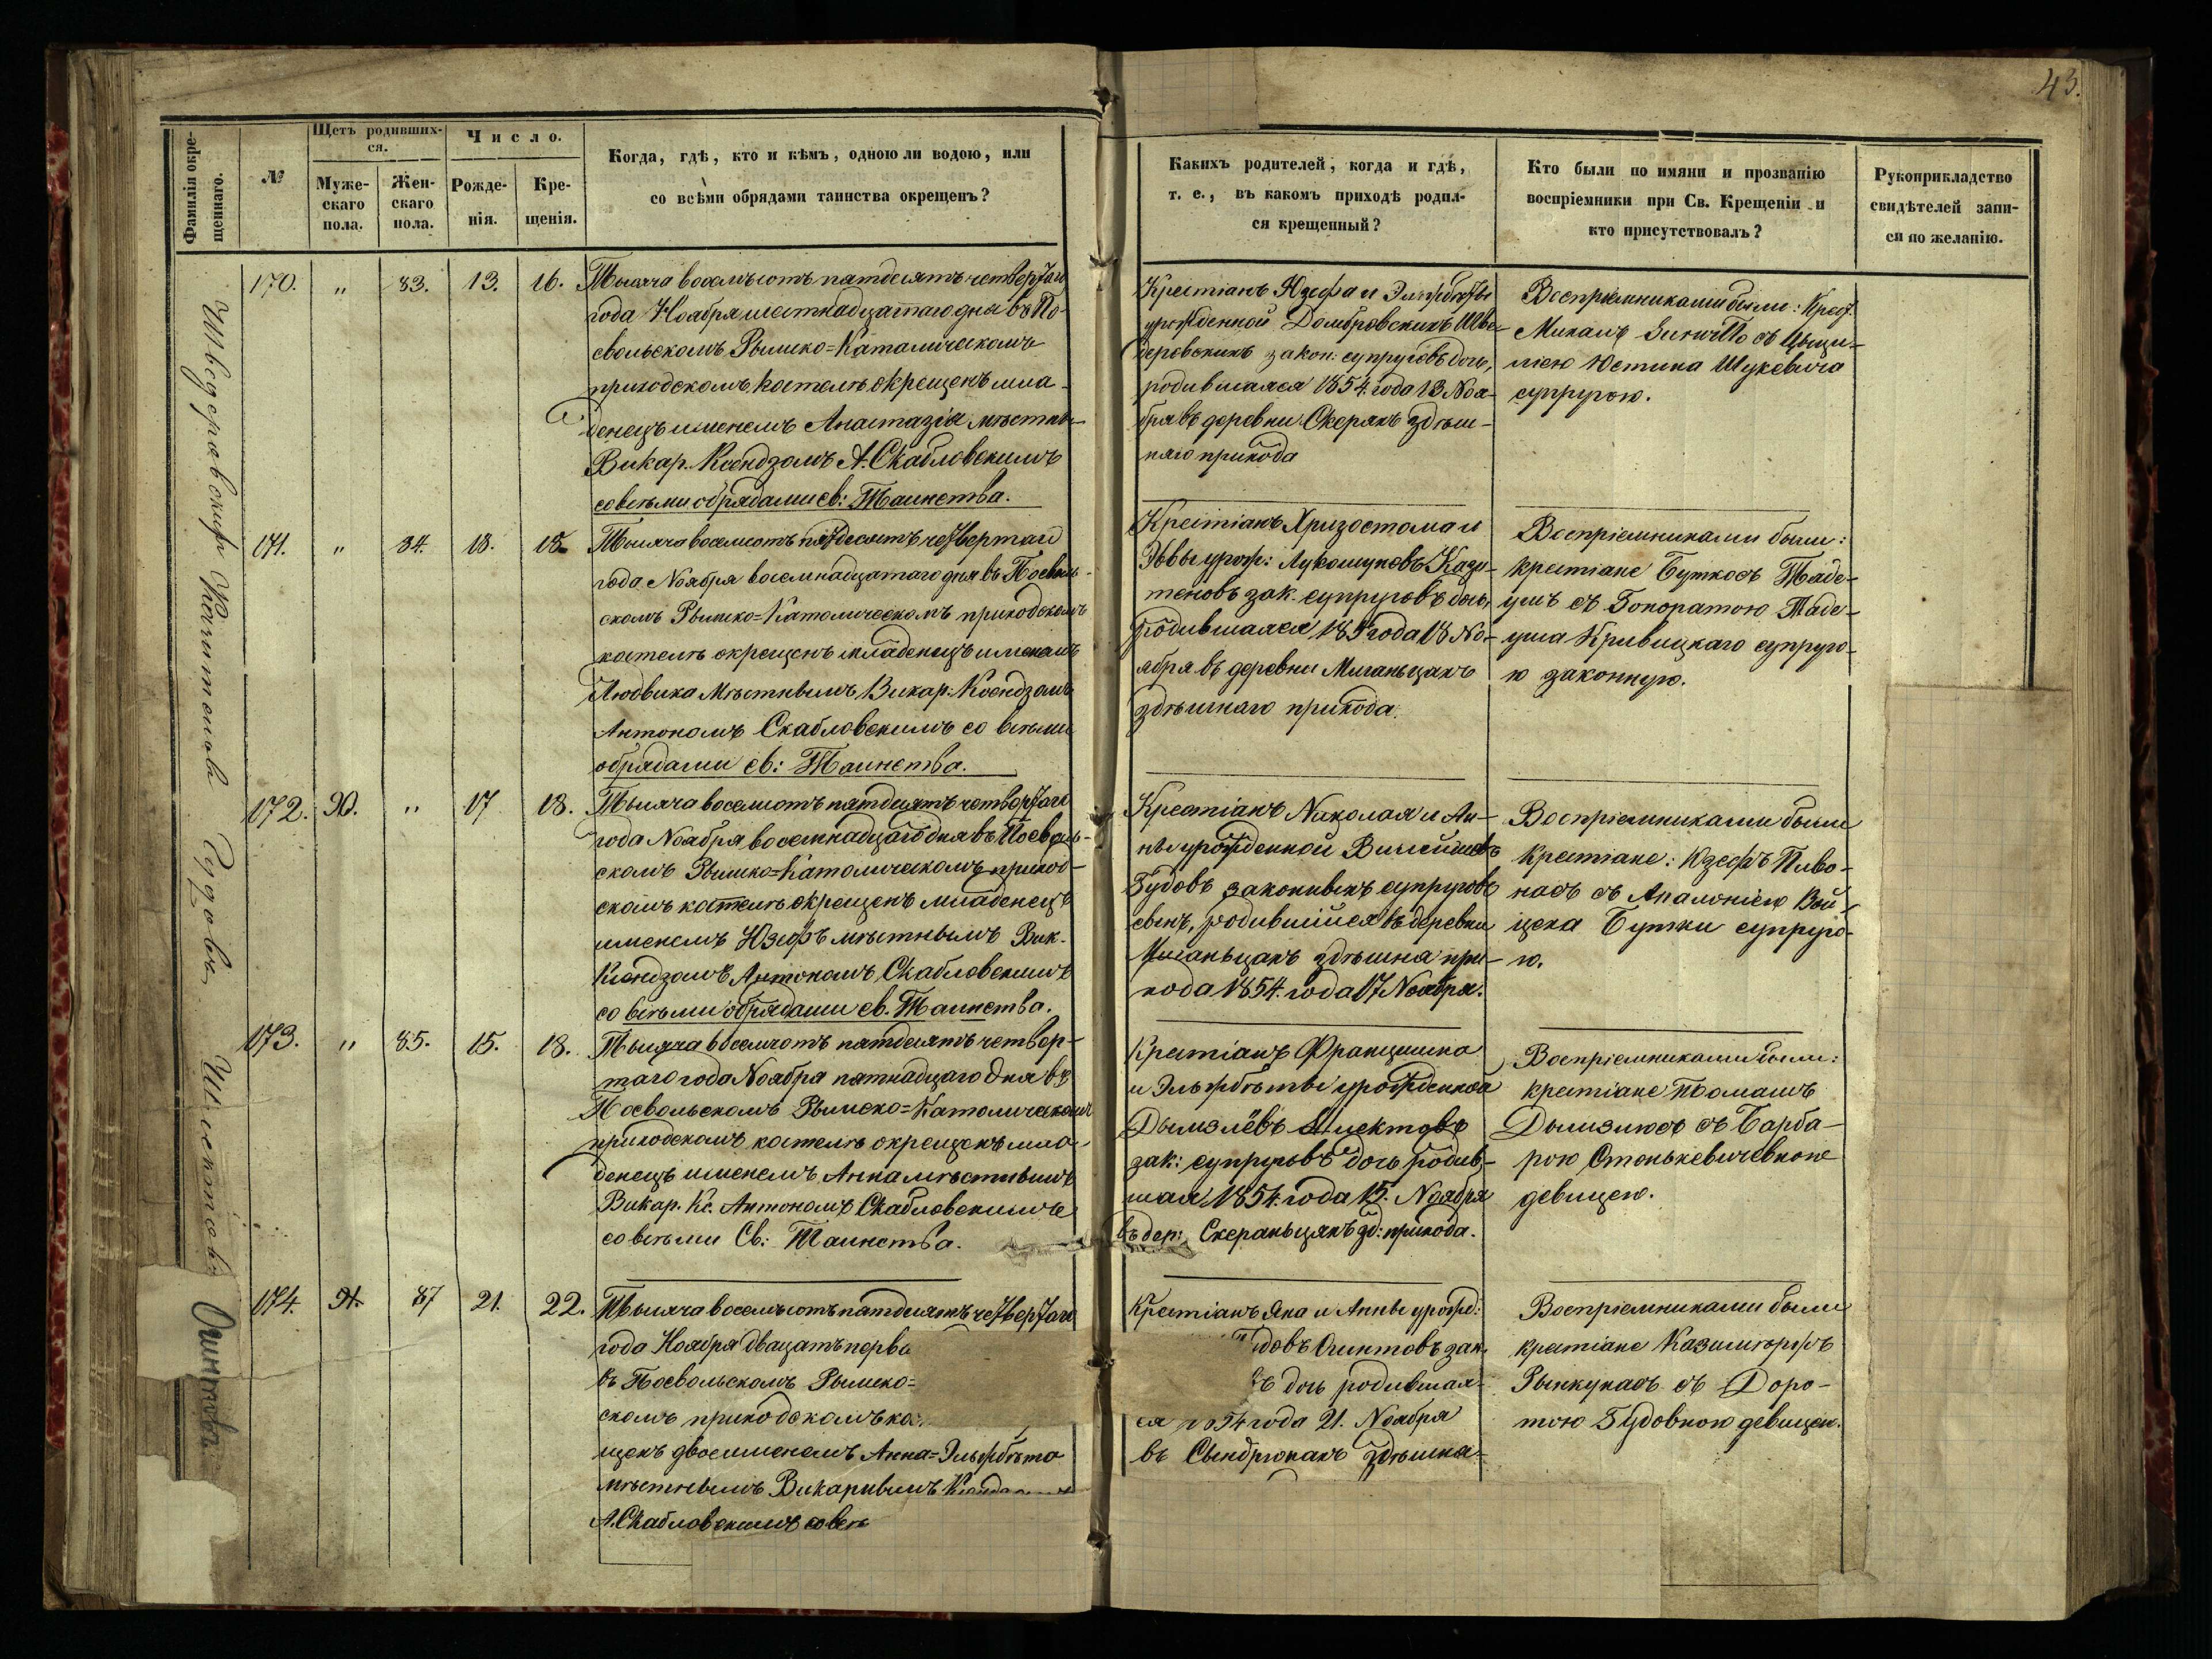 43.
Фамилія окре-
щеннаго.
№
Щетъ родивших-
ся.
Муже-
скаго
пола.
Жен-
скаго
пола.
Число.
Рожде-
нія.
Кре-
щенія.
Когда, гдѣ, кто и кѣмъ, одною ли водою, или
со всѣми обрядами таинства окрещенъ?
Какихъ родителей, когда и гдѣ,
т. е., въ какомъ приходѣ родил-
ся крещенный?
Кто были по имяни и прозванію
воспріемники при Св. Крещеніи и
кто присутствовалъ?
Рукоприкладство
свидѣтелей запи-
си по желанію.
170. " 83. 13. 16.
Тысяча восемьсотъ пятдесятъ четвертаго
года Ноября шестнадцатаго дня въ По-
свольскомъ Рымско=Католическомъ
приходскомъ костелѣ окрещенъ мла-
денецъ именемъ Анастазія мѣстны-
Викар. Ксендзомъ А. Скабловскимъ
со всѣми обрядами св: Таинства.
Крестіанъ Юзефа и Эльжбѣты
урожденной Домбровскихъ Шве-
деровскихъ закон: супруговъ дочь,
родившаяся 1854. года 13 Ноя-
бря въ деревни Скерякъ здѣш-
няго прихода
Воспріемниками были: Крест.
съ Цыци-
ліею Юстина Шукевича
супругою.
171. " 84. 18. 18.
Тысяча восемсотъ пятдесятъ четвертаго
года Ноября восемнадцатаго дня въ Посволь-
скомъ Рымско=Католическомъ приходскомъ
костелѣ окрещенъ младенецъ именемъ
Людвика Мѣстнымъ Викар: Ксендзомъ
Антономъ Скабловскимъ со всѣми
обрядами св: Таинства.
Крестіанъ Хризостома и
Эвы урож: Лукошуновъ
зак. супруговъ дочь,
родившаяся 185 года 18 Но-
ября въ деревни Миганьцахъ
здѣшнаго прихода.
Воспріемниками были:
крестіане Буткосъ Таде-
ушъ съ Гоноратою Таде-
уша Кривицкаго супруго-
ю законную.
172. 90. " 17 18.
Тысяча восемсотъ пятдесятъ четвертаго
года Ноября восемнадцаго дня въ Посволь-
скомъ Рымско=Католическомъ приход-
скомъ костелѣ окрещенъ младенецъ
именемъ Юзефъ мѣстнымъ Вик.
Ксендзомъ Антономъ Скабловскимъ
со всѣми обрядами св. Таинства.
Крестіанъ Николая и Ан-
ны урожденной
Гудовъ законныхъ супруговъ
сынъ, родившійся въ деревни
Миганьцахъ здѣшня при-
хода 1854. года 17 Ноября.
Воспріемниками были
крестіане: Юзефъ Пиво-
насъ съ Апалоніею Вой-
цеха Бутки супруго-
ю.
173. " 85. 15. 18.
Тысяча восемсотъ пятдесятъ четвер-
таго года Ноября пятнадцаго дня въ
Посвольскомъ Рымско=Католическомъ
приходскомъ костелѣ окрещенъ мла-
денецъ именемъ Анна мѣстнымъ
Викар. Кс. Антономъ Скабловскимъ
со всѣми Св: Таинства.
Крестіанъ Францишка
и Эльжбѣты урожденной
Дымзлёвъ Шлектовъ
зак: супруговъ дочь родив-
шая 1854. года 15. Ноября
въ дер: Скераньцяхъ зд: прихода.
Воспріемниками были:
крестіане Томашъ
Дымзлюсъ съ Барба-
рою Станькевичевною
девицею.
174. 91. 87 21. 22.
Тысяча восемьсотъ пятдесятъ четвертаго
года Ноября двацатъ перва
въ Посвольскомъ Рымско=
скомъ приходскомъ ко
щенъ двоеименемъ Анна=Эльжбѣта
мѣстнымъ Викарнымъ
А. Скабловскимъ со всѣ
Крестіанъ Яна и Анны урожд:
довъ Очинтовъ зак.
въ дочь родившая-
ся 54 года 21. Ноября
въ Свындрюнахъ здѣшна-
Воспріемниками были
крестіане Казимѣржъ
Рынкунасъ съ Доро-
тою Гудовною девицею.
Шведеровскихъ
Гудовъ
Шлектовъ
Очинтовъ